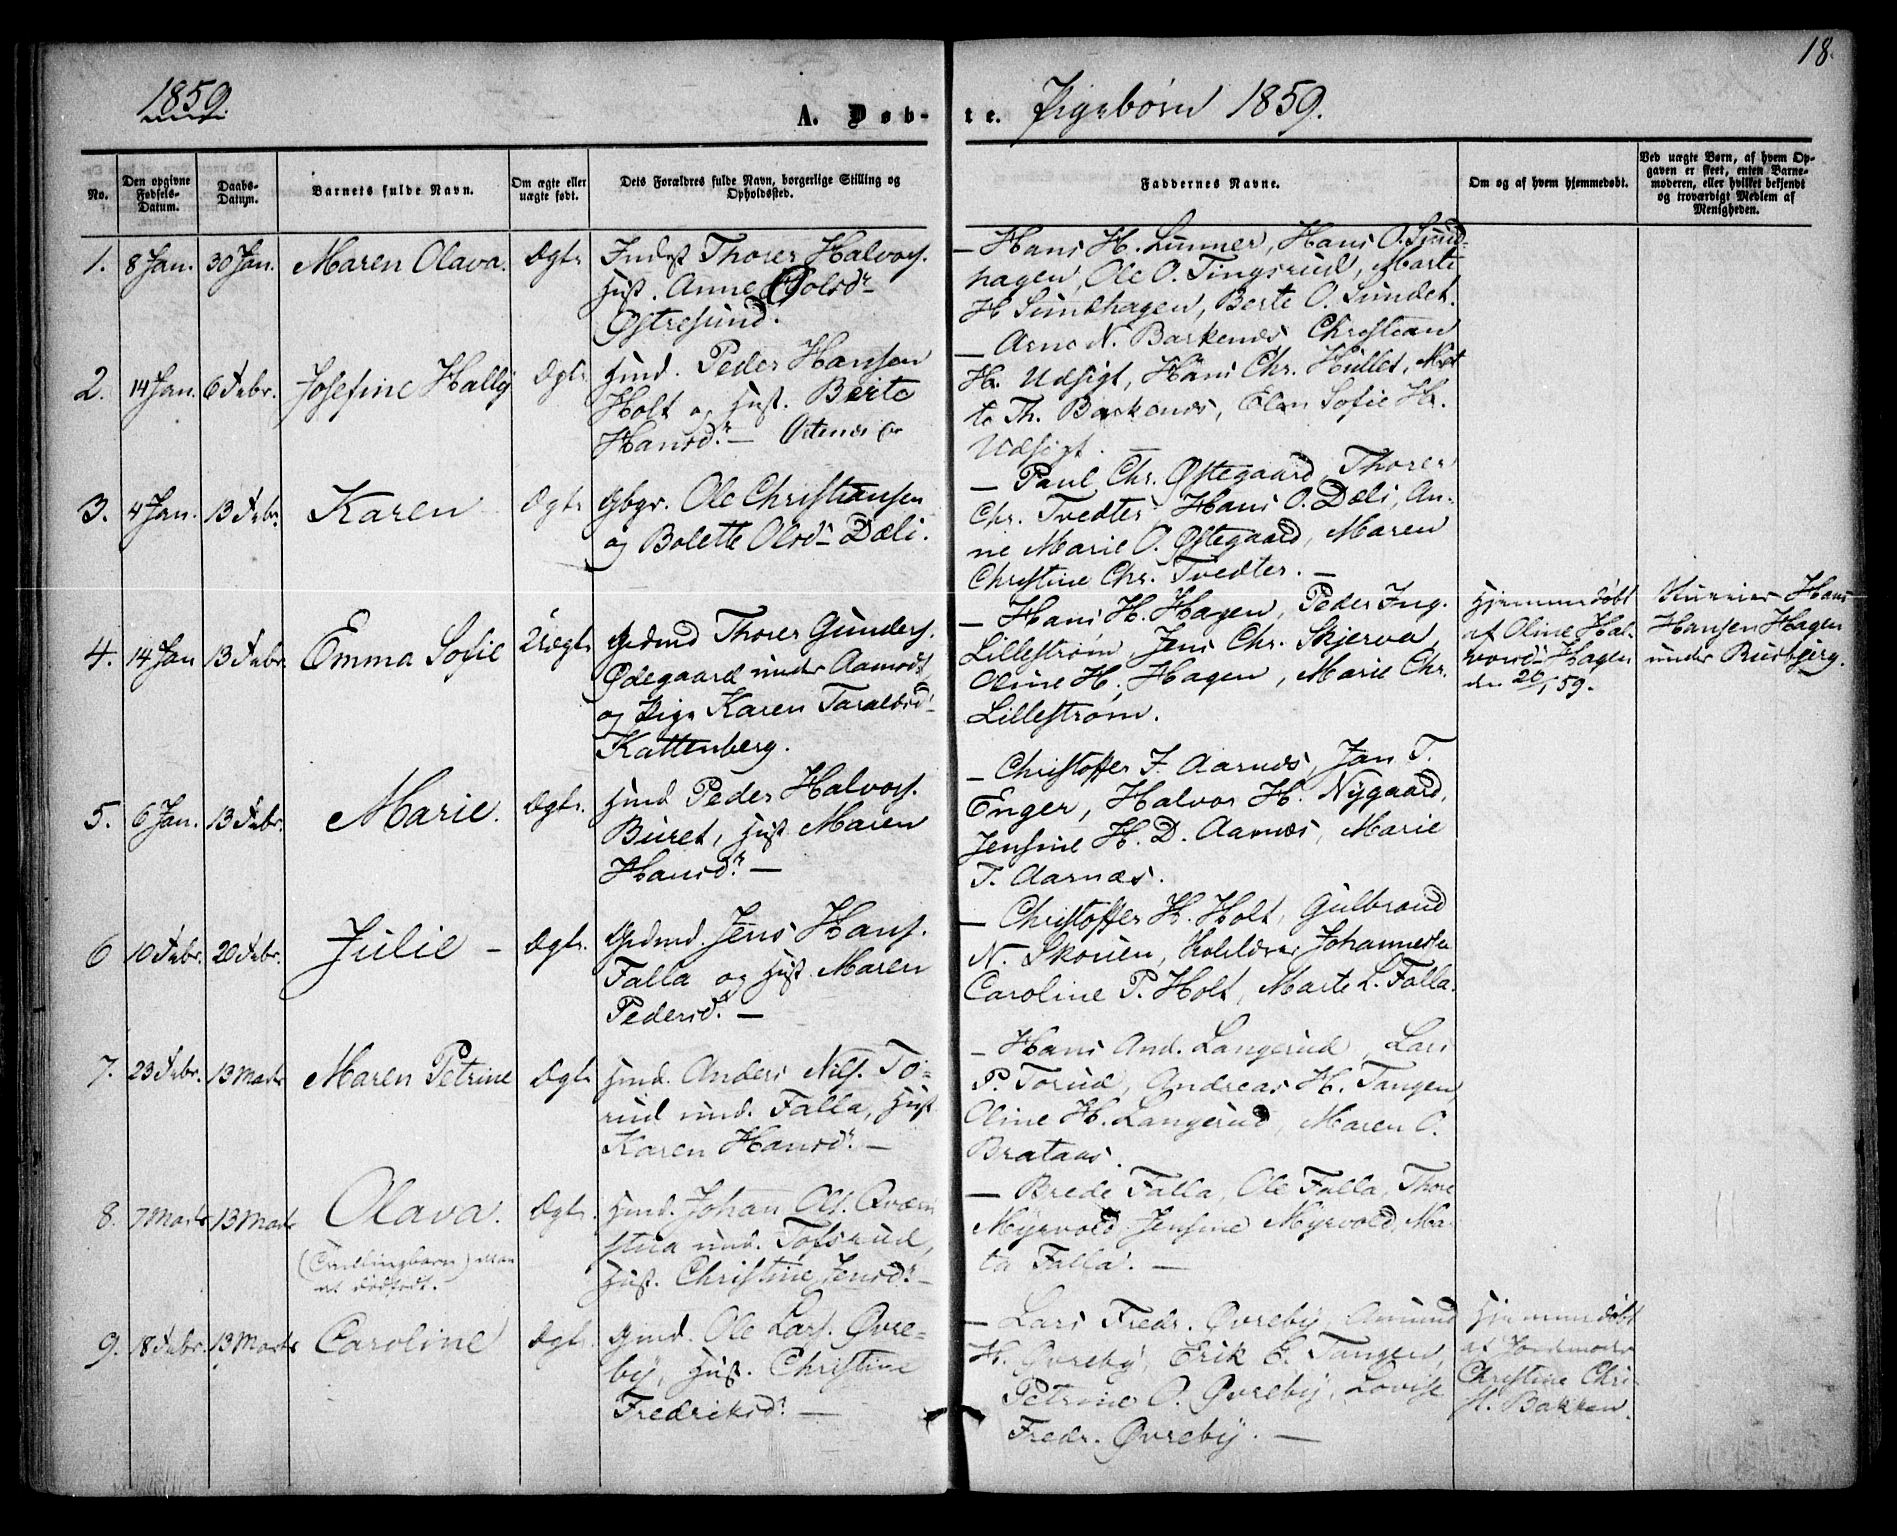 18.
1859.
A. Døb-
te. Pigebørn 1859.
No.
Den opgivne
Fødsels-
Datum.
Daabs-
Datum.
Barnets fulde Navn.
Om ægte eller
uægte født.
Dets Forældres fulde Navn, borgerlige Stilling og
Opholdssted.
Faddernes Navne.
Om og af hvem hjemmedøbt.
Ved uægte Børn, af hvem Op-
gaven er skeet, enten Barne-
moderen, eller hvilket bekjendt
og troværdigt Medlem af
Menigheden.
1. 8 Jan. 30 Jan. Maren Olava. Ægte
Inds Thorer Halvors.
Hust. Anne Olsd
Østresund.
– Hans H. Lunner, Hans O. Sund-
hagen, Ole O. Tingsrud, Marte
H Sundhagen, Berte O. Sundet.
2. 14 Jan. 6 Febr. Josefine Hally Ægte
Husmd. Peder Hansen
Holt og Hust. Berte
Hansdr. –
– Arne N. Barkenæs Christian
H. Udsigt, Hans Chr. Hullet, Mat
te Th. Barkenæs, Elen Sofie H.
Udsigt.
3. 4 Jan. 13 Febr. Karen Ægte
Gbgr. Ole Christiansen
og Bolette Olsd Dæli.
– Paul Chr. Østegaard, Thorer
Chr. Tvedter, Hans O. Dæli, An-
ne Marie O. Østegaard, Maren
Christine Chr. Tvedter. –
4. 14 Jan 13 Febr. Emma Sofie Uægte
Grdmd Thorer Gunders.
Ødegaard under Aamodt
og Pige Karen Taraldsd
Kattenberg.
– Hans H. Hagen, Peder Ing.
Lillestrøm, Jens Chr. Skjerva,
Oline H. Hagen, Marie Chr.
Lillestrøm.
Hjemmedøbt
af Oline Hal-
vorsd Hagen
den 20/1 59.
Hans
Hansen Hagen
under Busbjerg.
5. 6 Jan. 13 Febr. Marie. Ægte.
Husmd Peder Halvors.
Buret, Hust Maren
Hansdr. –
– Christoffer J. Aarnæs, Jan T.
Enger, Halvor H. Nygaard,
Jensine H. D. Aarnæs, Marie
T. Aarnæs.
6 10 Febr. 20 Febr. Julie – Ægte.
Grdmd. Jens Hans.
Falla og Hust. Maren
Pedersdr. –
– Christoffer H. Holt, Gulbrand
N. Skouen, Johannes
Caroline P. Holt, Marte L. Falla.
7. 23 Febr. 13 Marts Maren Petrine Ægte
Husmd. Anders Nils. To-
rud und. Falla, Hust
Karen Hansdr. –
– Hans And. Langerud, Lars
P. Torud, Andreas H. Tangen,
Oline H. Langerud, Maren O.
Brataas.
8. 7 Marts 13 Marts Olava. Ægte.
(Tvillingbarn)
et dødfødt.
Husmd. Johan Ols. Qværn
stua und. Tofsrud,
Hust. Christine Jensdr. –
– Brede Falla, Ole Falla, Thore
Myrvold Jensine Myrvold, Ma-
te Falla. –
9. 18 Febr. 13 Marts Caroline Ægte.
Gmd. Ole Lars. Øvre-
by, Hust. Christine
Fredriksdr. –
– Lars Fredr. Øvreby, Amund
H. Øvreby, Erik E. Tangen,
Petrine O. Øvreby, Lovise
Fredr. Øvreby. –
Hjemmedøbt
af Jordmoder
Christine Chri
st. Bakken.